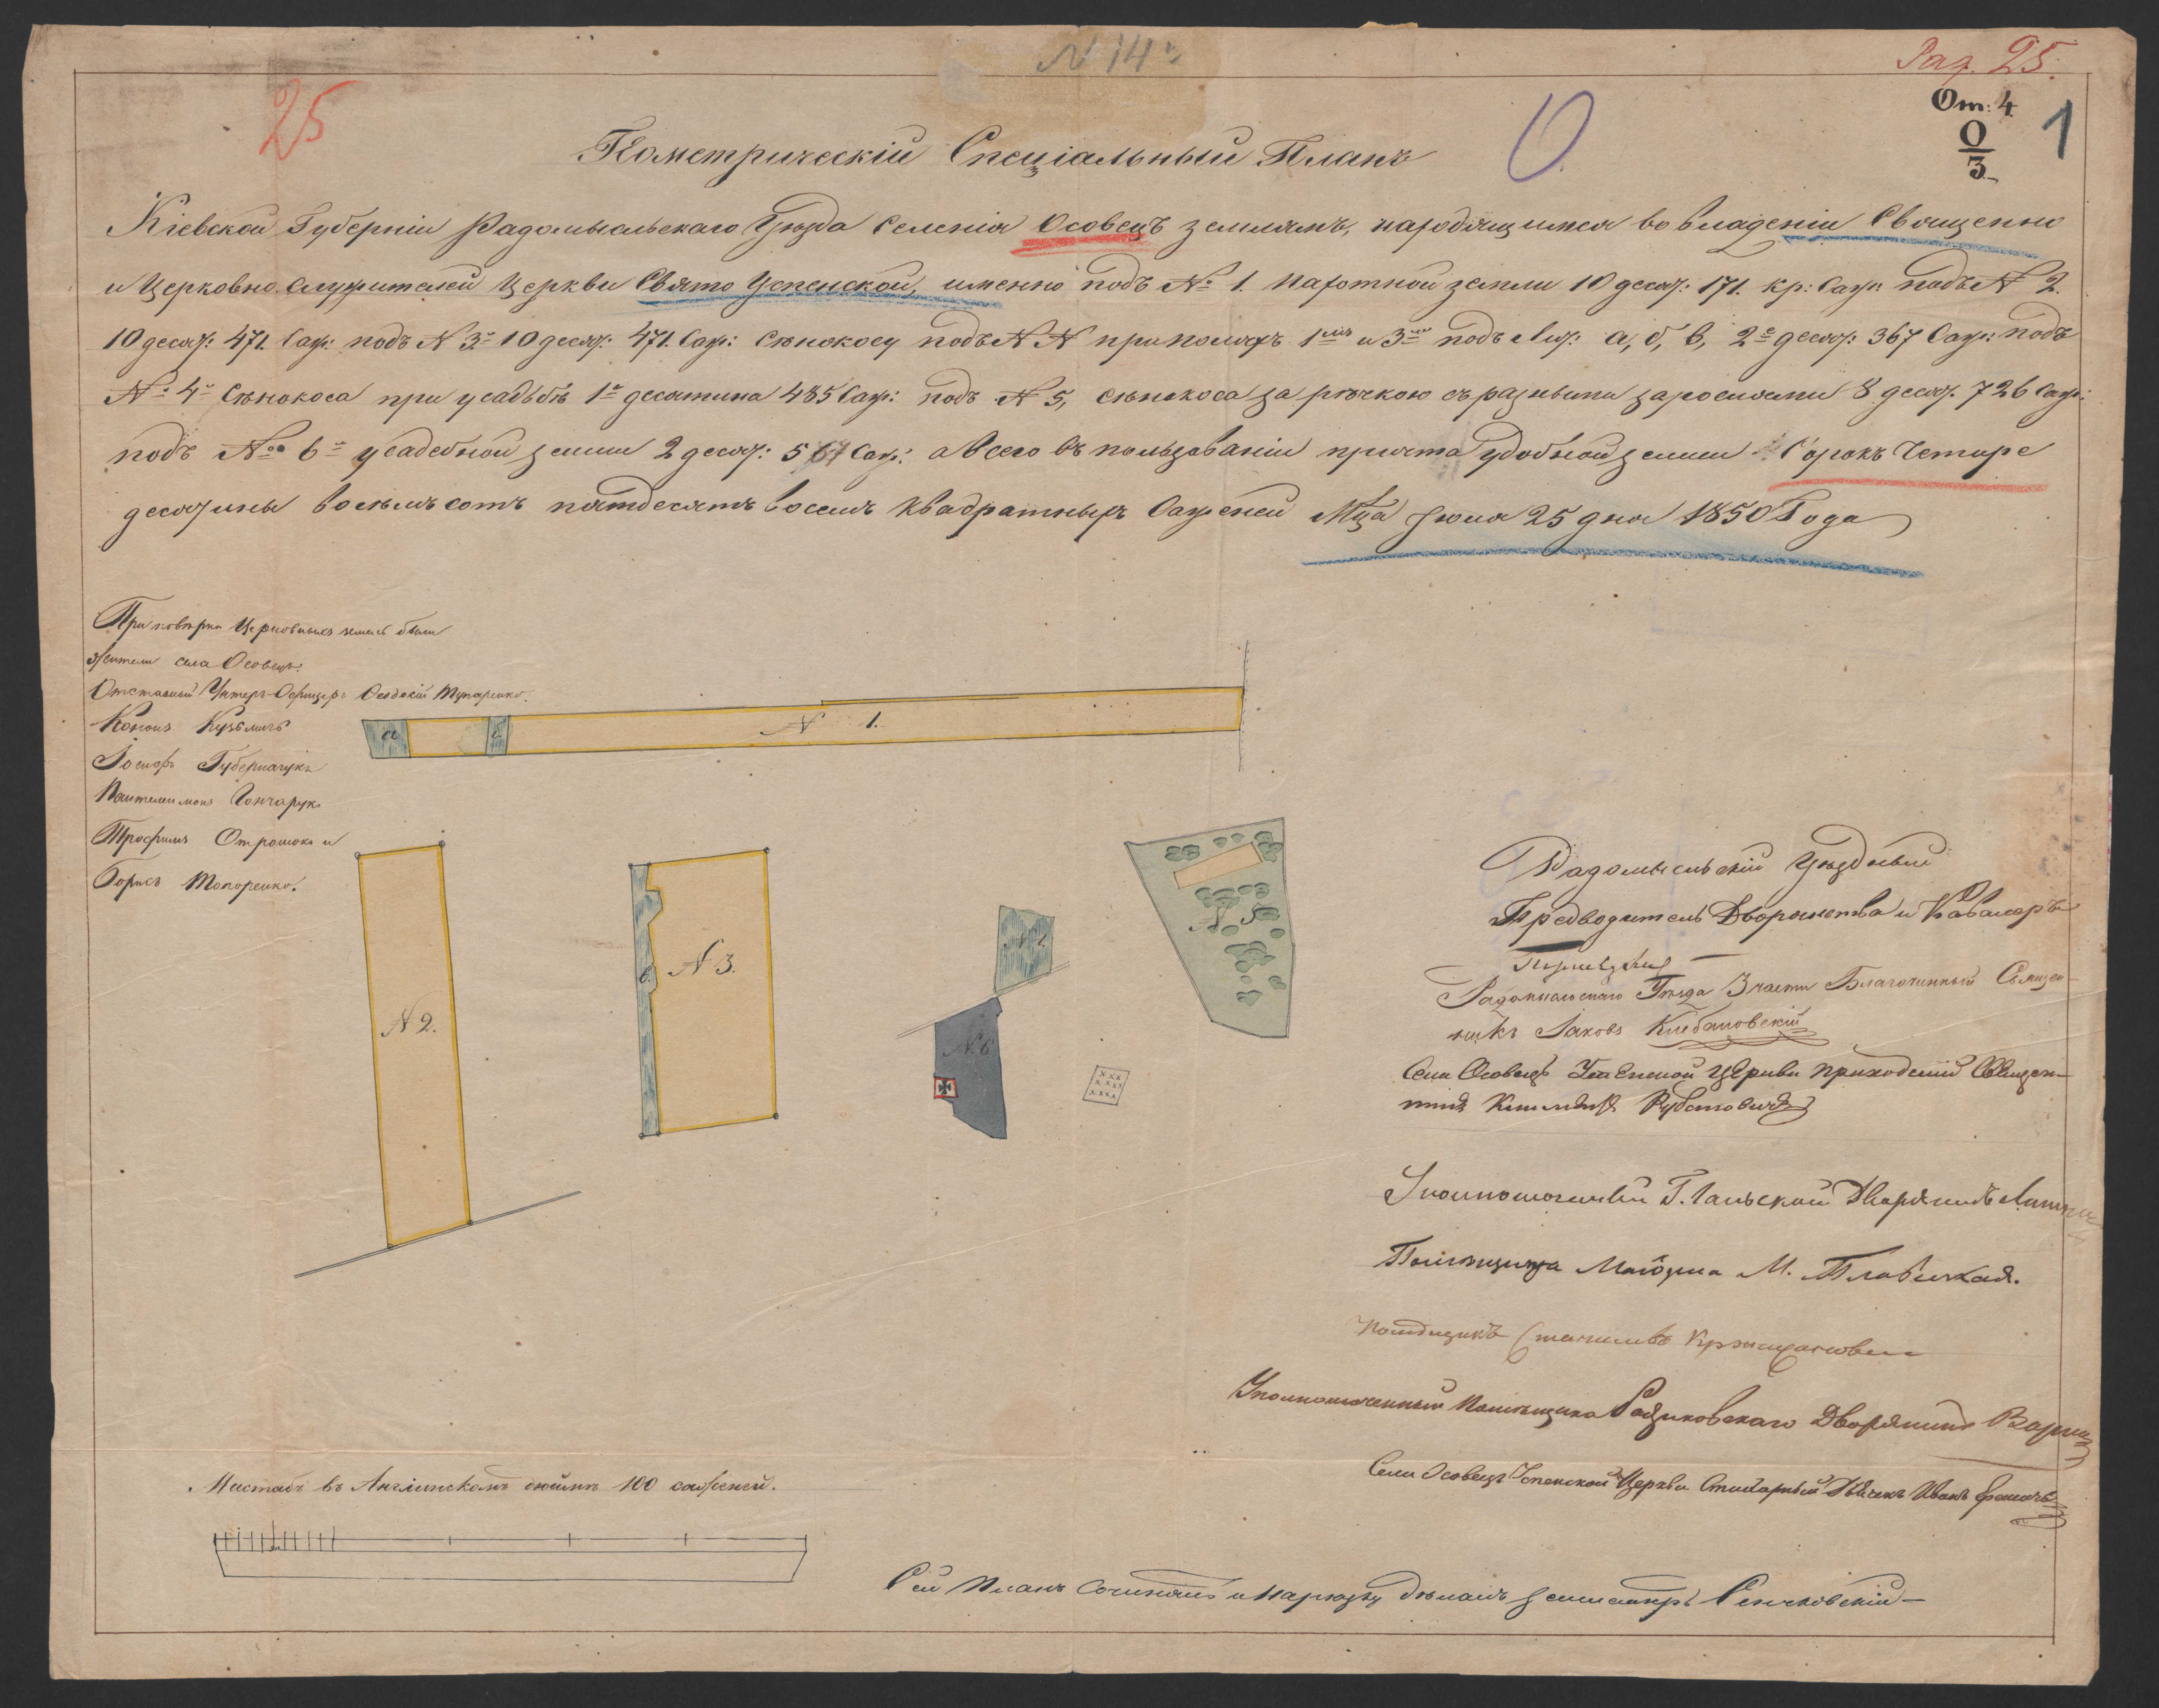 N 14
Раз. 25.
25
От: 4
О
3
1
О.
Геометрическій Спеціальный Планъ
Кіевской Губерніи Радомысльскаго Уѣзда селенія Особецъ землямъ, находящимся во владеніи Священно
и Церковно служителей Церкви Свято Успенской, именно подъ № 1. пахотной земли 10 десят: 171. кр: Саж: подъ N 2.
10 десят: 471. Саж: подъ N 3. 10 десят: 471. Саж: Сѣнокосу подъ N N при поляхъ 1мъ и 3мъ подъ Лит: а, б, в, 2 десят: 367 Саж: подъ
№ 4 Сѣнокоса при усадьбѣ 1 десятина 485 Саж: подъ N 5, сѣнокоса за рѣчкою съ разными зарослями 8 десят. 726 Саж:
подъ № 6 усадебной земли 2 десят: 567 Саж: а Всего въ пользованіи причта удобной земли Сорокъ Четыре
десятины восемьсотъ пятдесятъ восемъ квадратныхъ Саженей Мца Іюля 25 дня 1850 Года
При повѣрки Церковныхъ земель были
жители села Особецъ:
Отставный Унтеръ-Офицеръ Тупаренко.
Кононъ Кузьмичъ
Іосифъ Губерначукъ
Пантелеимонъ Гончарукъ
Трофимъ Отрошокъ и
Борисъ Топоренко.
а
б.
N 1.
N 2.
в.
N 3.
N 4.
N 5
N 6
Радомысльскій Уѣздный
Предводитель Дворянства и Кавалеръ
Радомысльскаго Уѣзда 3 части Благочинный Священ-
никъ Іаковъ Клебановскій
Села Особецъ Успенской Церкви Приходскій Священ-
никъ
Уполномоченный Г. Дворянинъ
Помѣщица М. Плавицкая.
Помѣщикъ
Уполномоченный Помѣщика Дворянинъ
Села Особецъ Успенской Церкви Стихарный Дьячекъ Иванъ
Мастабъ въ Англинскомъ дюймѣ 100 саженей.
Сей Планъ Сочинялъ и Нарѣзку дѣлалъ Землемѣръ